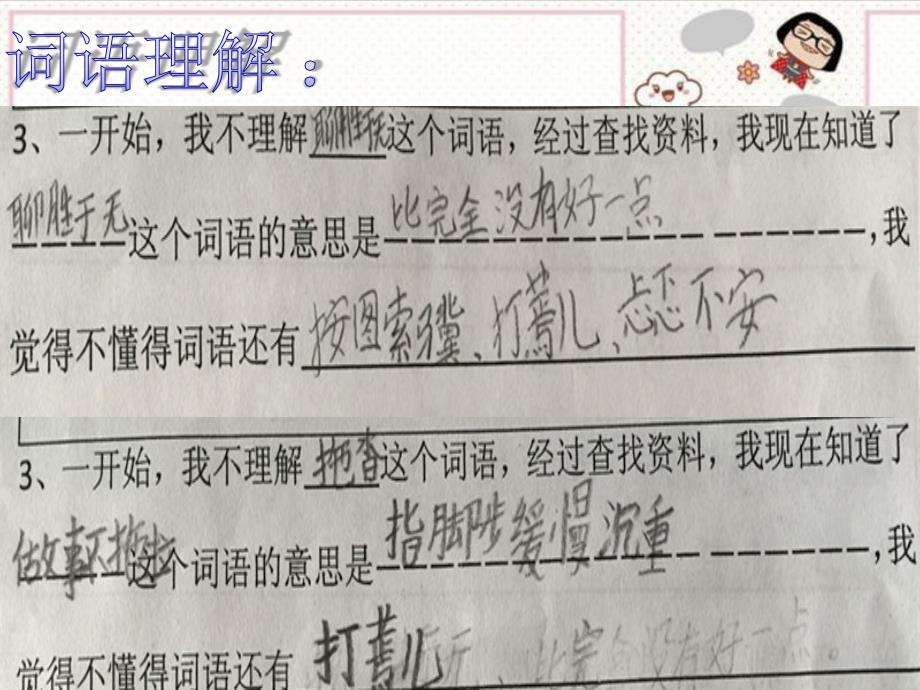 词语理解：
3、一开始，我不理解聊胜于无这个词语，经过查找资料，我现在知道了
聊胜于无这个词语的意思是比完全没有好一点，我
觉得不懂得词语还有按图索骥、打蔫儿、忐忑不安
3、一开始，我不理解拖沓这个词语，经过查找资料，我现在知道了
做事不拖拉这个词语的意思是指脚步缓慢沉重，我
觉得不懂得词语还有打蔫儿 比完全没有好一点。